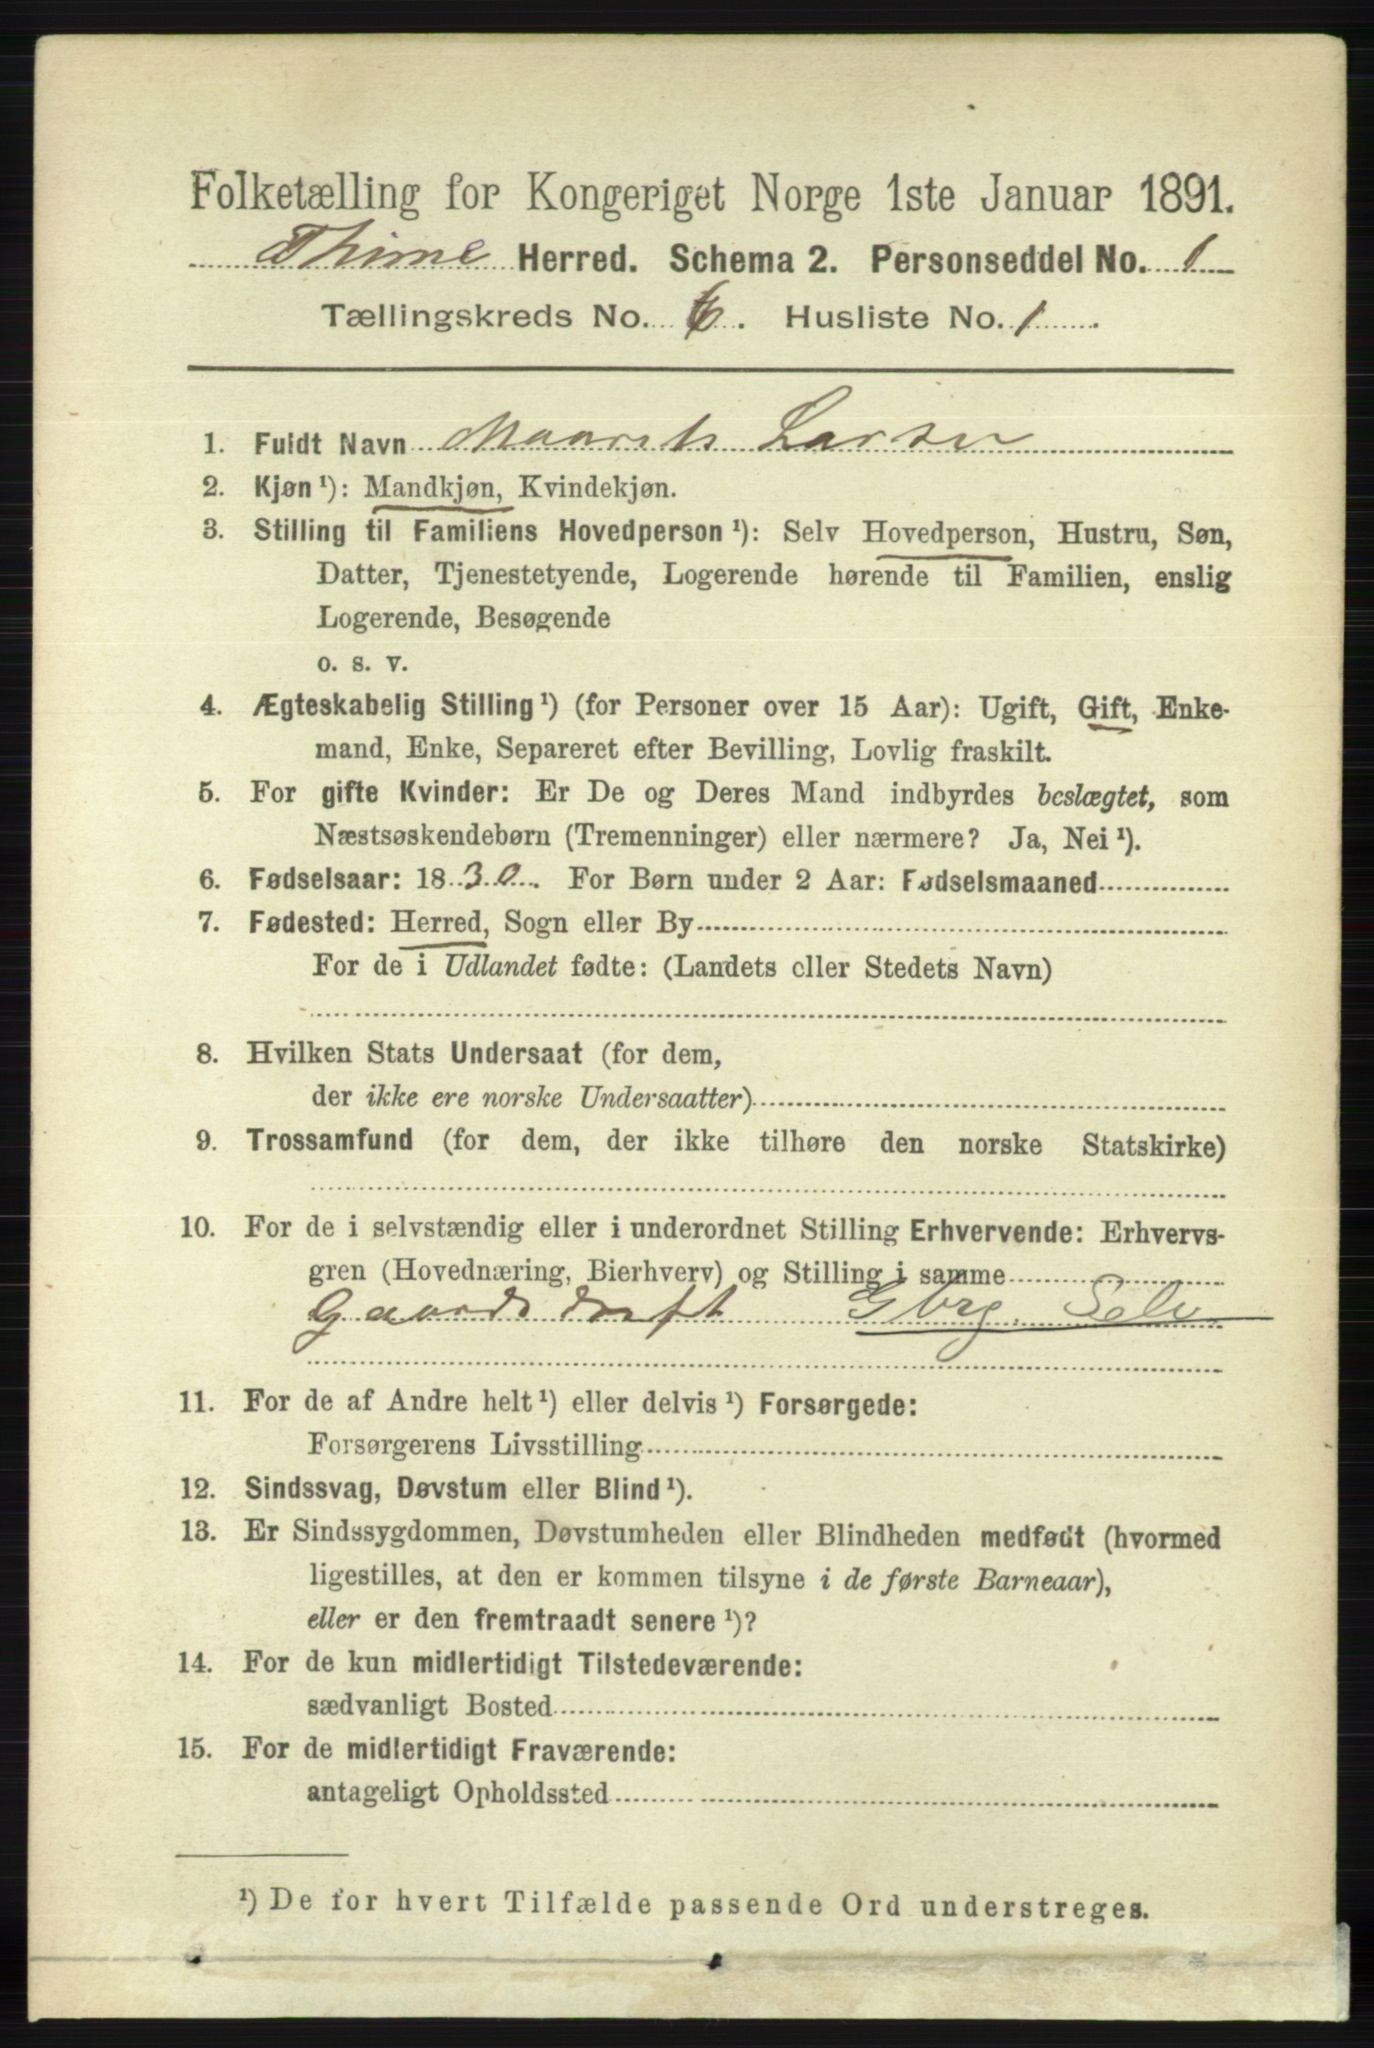 Folketælling for Kongeriget Norge 1ste Januar 1891.
Thime Herred. Schema 2. Personseddel No. 1
Tællingskreds No. 6. Husliste No. 1.
1. Fuldt Navn Maurits Larsen
2. Kjøn ¹): Mandkjøn, Kvindekjøn.
3. Stilling til Familiens Hovedperson ¹): Selv Hovedperson, Hustru, Søn,
Datter, Tjenestetyende, Logerende hørende til Familien, enslig
Logerende, Besøgende
o. s. v.
4. Ægteskabelig Stilling ¹) (for Personer over 15 Aar): Ugift, Gift, Enke-
mand, Enke, Separeret efter Bevilling, Lovlig fraskilt.
5. For gifte Kvinder: Er De og Deres Mand indbyrdes beslægtet, som
Næstsøskendebørn (Tremenninger) eller nærmere? Ja, Nei ¹).
6. Fødselsaar: 1830. For Børn under 2 Aar: Fødselsmaaned
7. Fødested: Herred, Sogn eller By
For de i Udlandet fødte: (Landets eller Stedets Navn)
8. Hvilken Stats Undersaat (for dem,
der ikke ere norske Undersaatter)
9. Trossamfund (for dem, der ikke tilhøre den norske Statskirke)
10. For de i selvstændig eller i underordnet Stilling Erhvervende: Erhvervs-
gren (Hovednæring, Bierhverv) og Stilling i samme
Gaardsdrift Gbrg. Selv
11. For de af Andre helt ¹) eller delvis ¹) Forsørgede:
Forsørgerens Livsstilling
12. Sindssvag, Døvstum eller Blind ¹).
13. Er Sindssygdommen, Døvstumheden eller Blindheden medfødt (hvormed
ligestilles, at den er kommen tilsyne i de første Barneaar),
eller er den fremtraadt senere ¹)?
14. For de kun midlertidigt Tilstedeværende:
sædvanligt Bosted
15. For de midlertidigt Fraværende:
antageligt Opholdssted
¹) De for hvert Tilfælde passende Ord understreges.